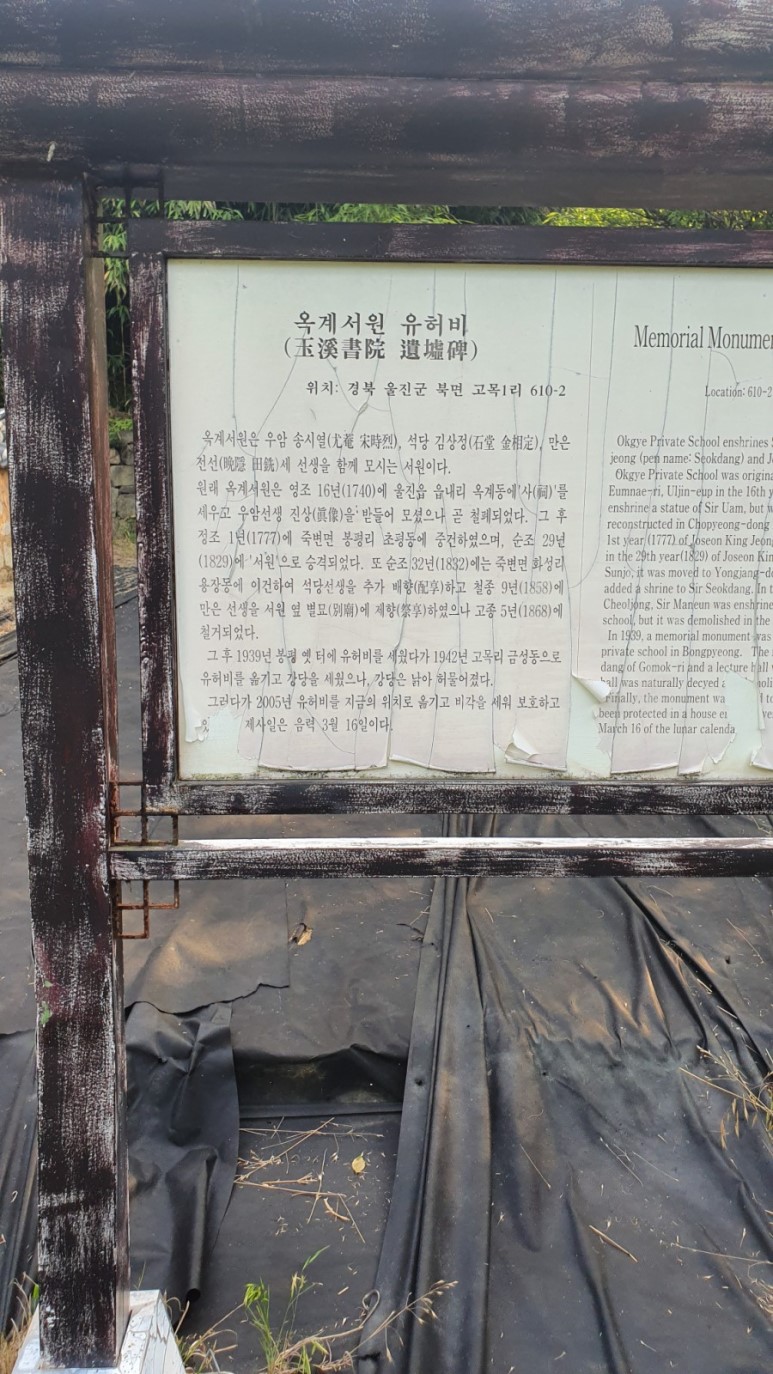 옥계서원 유허비
(玉溪書院 遺墟碑)
위치: 경북 울진군 북면 고목1리 610-2
옥계서원은 우암 송시열(尤菴 宋時烈), 석당 김상정(石堂 金相定), 만은
전선(晩隱 田銑)세 선생을 함께 모시는 서원이다.
원래 옥계서원은 영조 16년(1740)에 울진읍 읍내리 옥계동에 '사(祠)'를
세우고 우암선생 진상(眞像)을 받들어 모셨으나 곧 철폐되었다. 그 후
정조 1년(1777)에 죽변면 봉평리 초평동에 중건하였으며, 순조 29년
(1829)에 '서원'으로 승격되었다. 또 순조 32년(1832)에는 죽변면 화성리
용장동에 이건하여 석당선생을 추가 배향(配享)하고 철종 9년(1858)에
만은 선생을 서원 옆 별묘(別廟)에 제향(祭享)하였으나 고종 5년(1868)에
철거되었다.
그 후 1939년 봉평 옛 터에 유허비를 세웠다가 1942년 고목리 금성동으로
유허비를 옮기고 강당을 세웠으나, 강당은 낡아 허물어졌다.
그러다가 2005년 유허비를 지금의 위치로 옮기고 비각을 세워 보호하고
제사일은 음력 3월 16일이다.
Memorial Monumen
Location: 610-2
Okgye Private School enshrines S
jeong (pen name: Seokdang) and Je
Okgye Private School was origina
Eumnae-ri, Uljin-eup in the 16th y
enshrine a statue of Sir Uam, but w
reconstructed in Chopyeong-dong
1st year (1777) of Joseon King Jeong
in the 29th year(1829) of Joseon Kin
Sunjo, it was moved to Yongjang-do
added a shrine to Sir Seokdang. In t
Cheoljong, Sir Maneun was enshrine
school, but it was demolished in the
In 1939, a memorial monument was
private school in Bongpyeong. The
dang of Gomok-ri and a lecture hall
hall was naturally decyed a
Finally, the monument wa
been protected in a house
March 16 of the lunar calenda